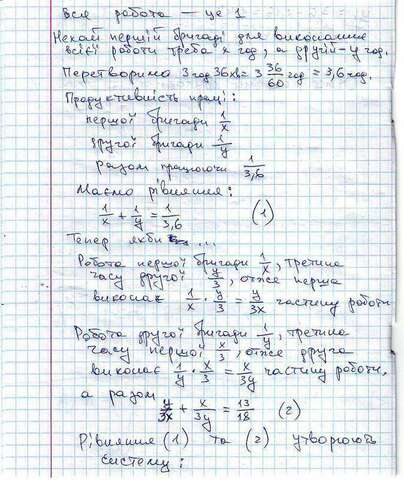 Вся робота — це 1
Нехай першій бригаді для виконання
всієї роботи треба x год, а другій - y год.
Перетворимо 3 год 36 хв = 3 36/60 год = 3,6 год.
Продуктивність праці:
першої бригади 1/x
другої бригади 1/y
разом працюючи 1/3,6
Маємо рівняння:
1/x + 1/y = 1/3,6 (1)
Тепер якби ...
Робота першої бригади 1/x, третина
часу другої y/3, отже перша
виконає 1/x · y/3 = y/3x частину роботи
Робота другої бригади 1/y, третина
часу першої x/3, отже друга
виконає 1/y · x/3 = x/3y частину роботи,
а разом
y/3x + x/3y = 13/18 (2)
Рівняння (1) та (2) утворюють
систему: